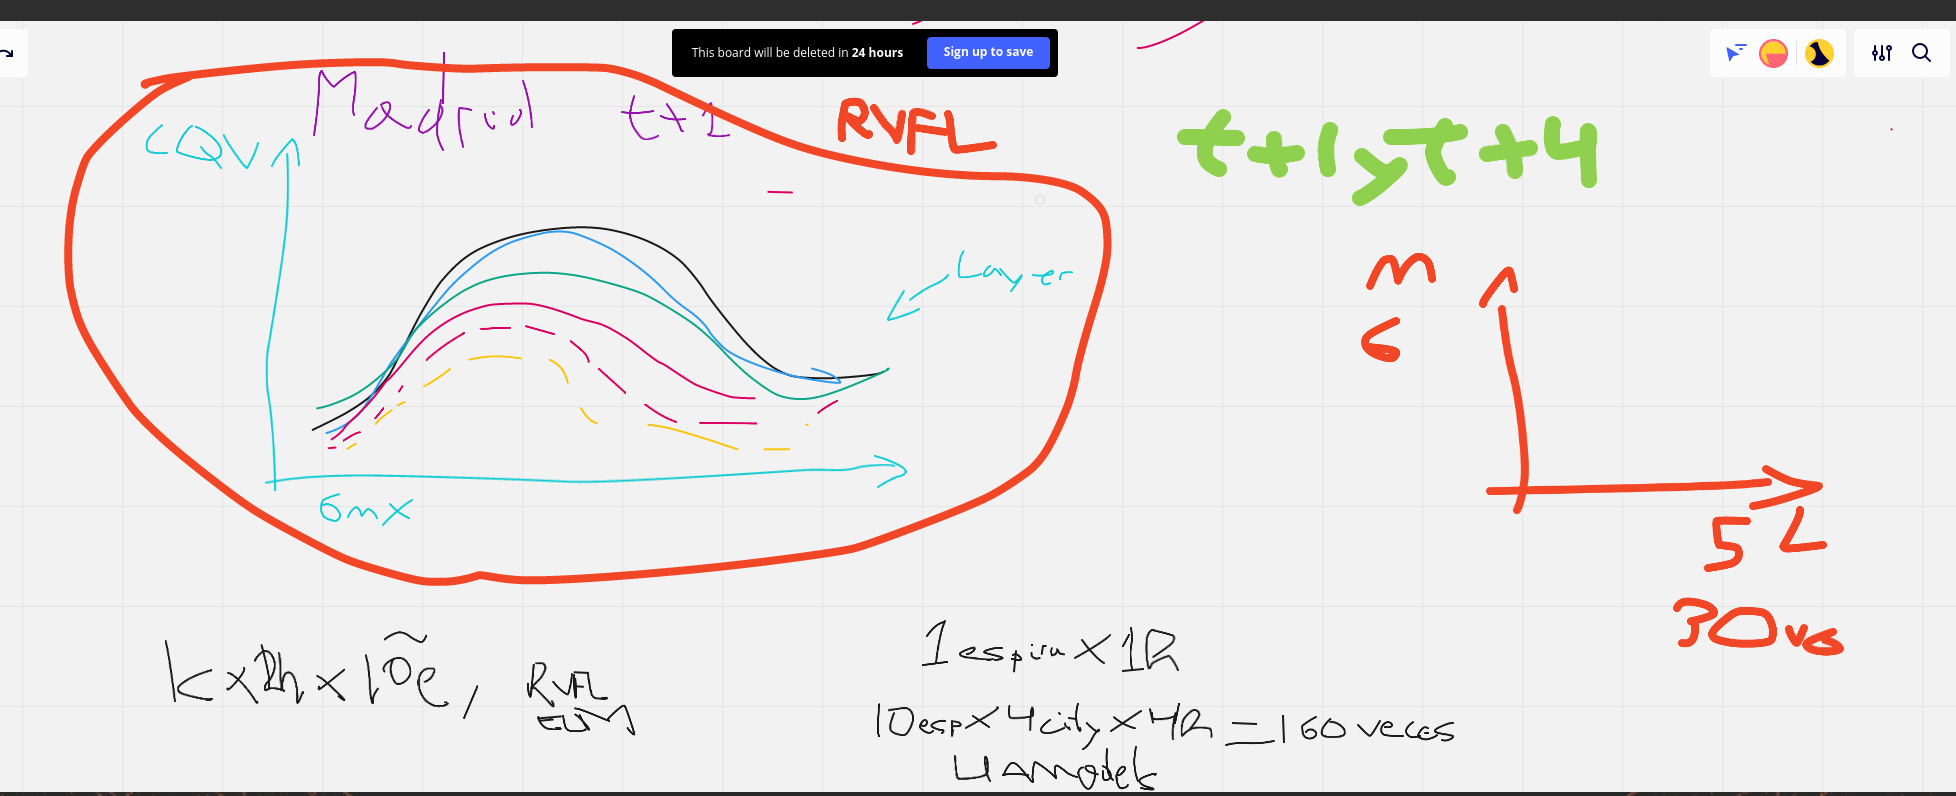 This board will be deleted in 24 hours
Sign up to save
Madrid t+1
RVFL
CQV
t+1 y t+4
Layer
M
G
5 L
30 ves
K x 2h x 10e, RVFL
1 espira X 1R
10 esp X 4 city X 4R = 160 veces
4 models